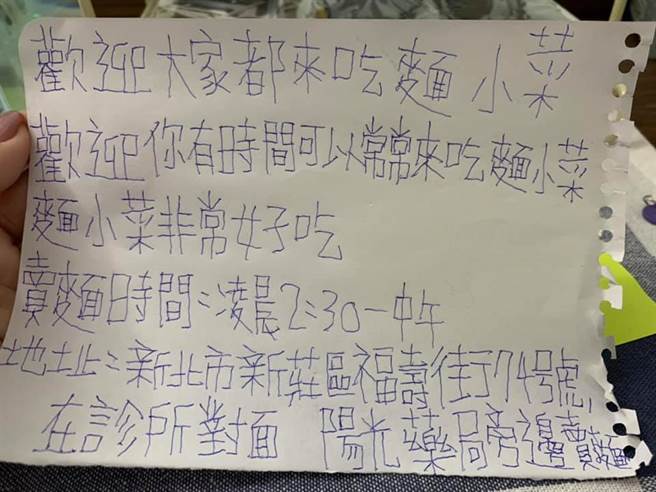 歡迎大家都來吃麵 小菜
歡迎你有時間可以常常來吃麵小菜
麵小菜非常好吃
賣麵時間:凌晨2:30一中午
地址:新北市新莊區福壽街74號,
在診所對面 陽光藥局旁邊賣麵